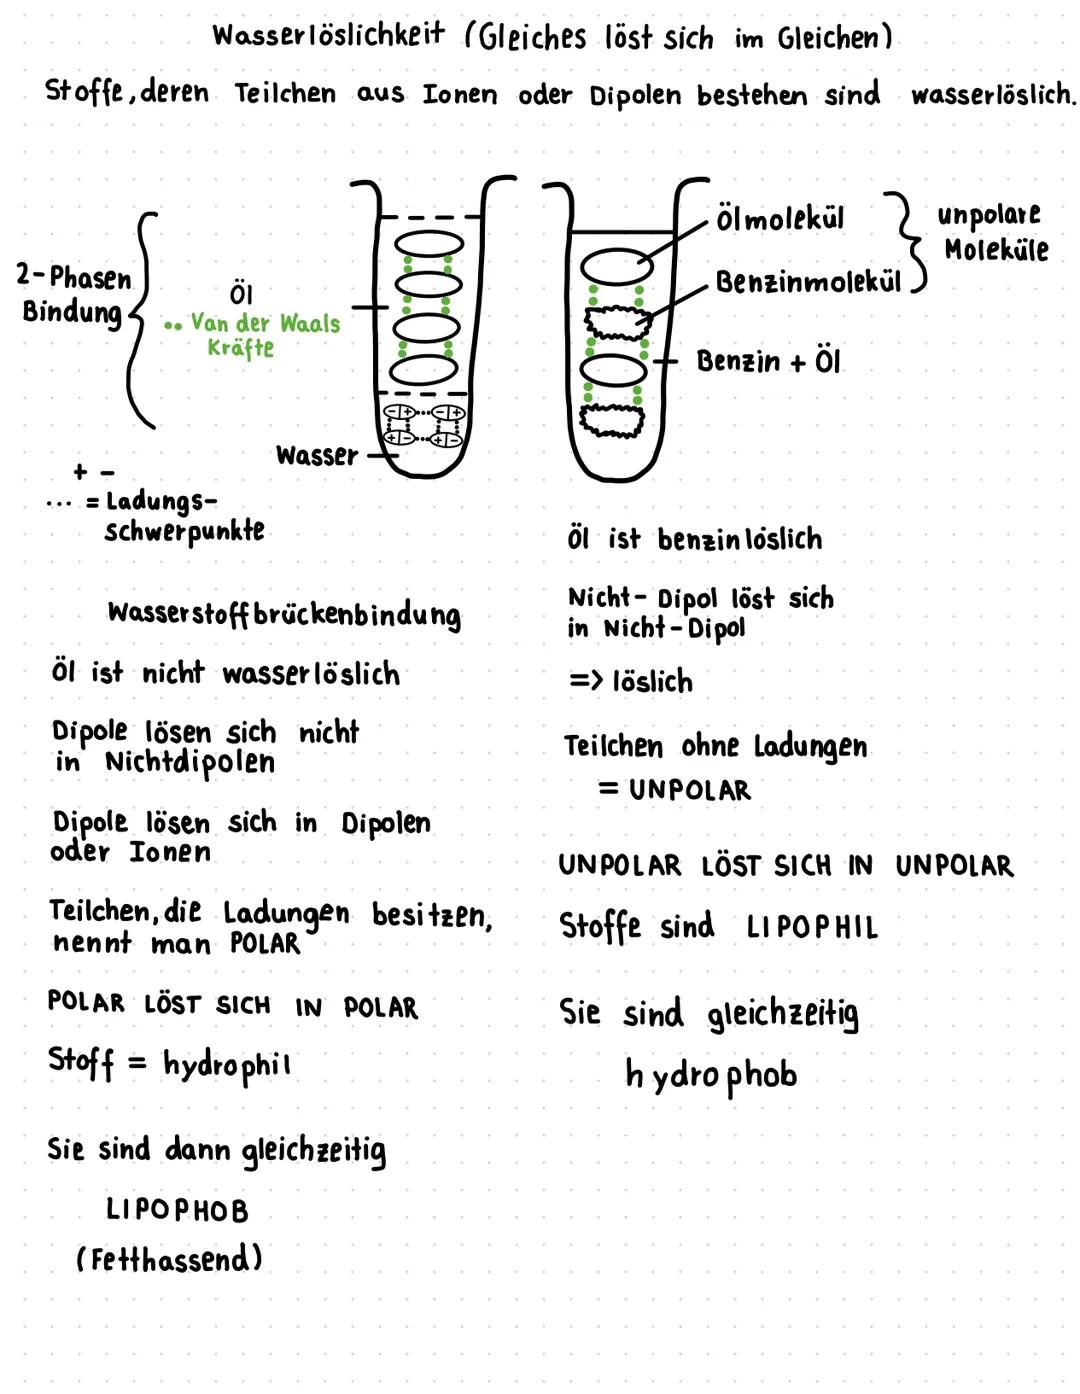 Wasserlöslichkeit (Gleiches löst sich im Gleichen)
Stoffe, deren Teilchen aus Ionen oder Dipolen bestehen sind wasserlöslich.
2-Phasen
Bindung
Öl
.. Van der Waals
Kräfte
Wasser
+ -
... = Ladungs-
schwerpunkte
Ölmolekül
Benzinmolekül
unpolare
Moleküle
Benzin + Öl
- + - +
+ - + -
Wasserstoffbrückenbindung
Öl ist nicht wasserlöslich
Dipole lösen sich nicht
in Nichtdipolen
Dipole lösen sich in Dipolen
oder Ionen
Teilchen, die Ladungen besitzen,
nennt man POLAR
POLAR LÖST SICH IN POLAR
Stoff = hydrophil
Sie sind dann gleichzeitig
LIPOPHOB
(Fetthassend)
Öl ist benzinlöslich
Nicht-Dipol löst sich
in Nicht-Dipol
=> löslich
Teilchen ohne Ladungen
= UNPOLAR
UNPOLAR LÖST SICH IN UNPOLAR
Stoffe sind LIPOPHIL
Sie sind gleichzeitig
hydrophob